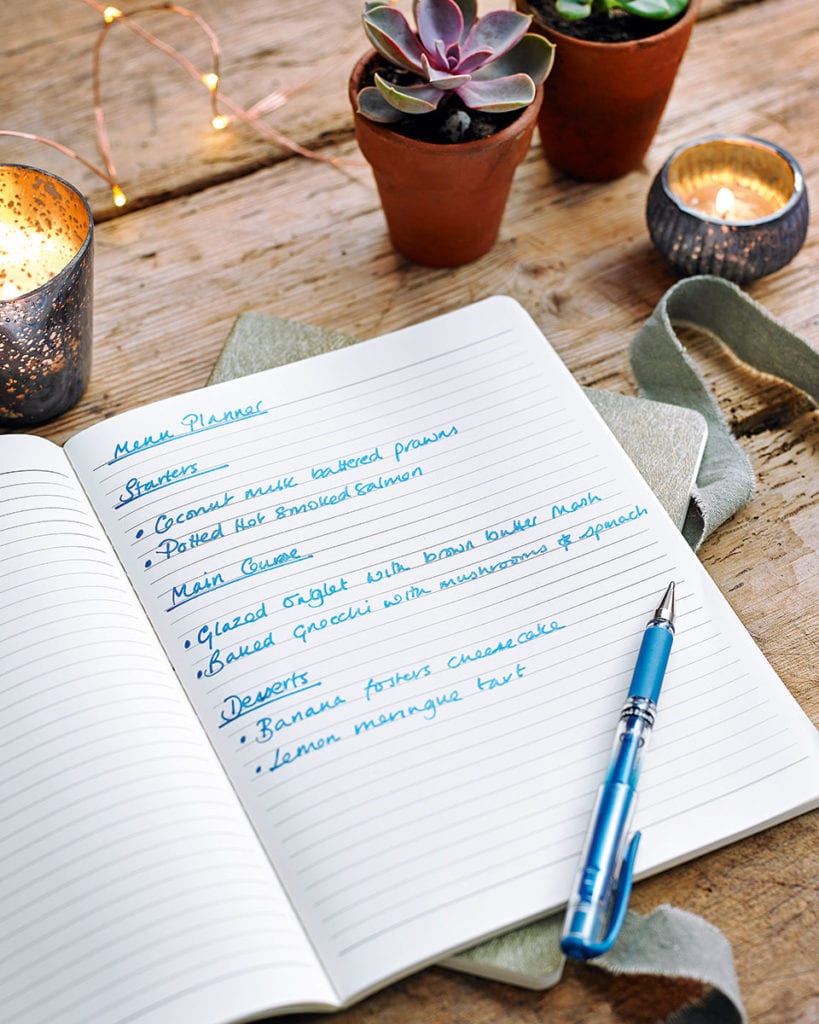 Menu Planner
Starters
• Coconut milk battered prawns
• Potted Hot smoked salmon
Main Course
• Glazed onglet with brown butter mash
• Baked gnocchi with mushrooms & spinach
Desserts
• Banana fosters cheesecake
• Lemon meringue tart